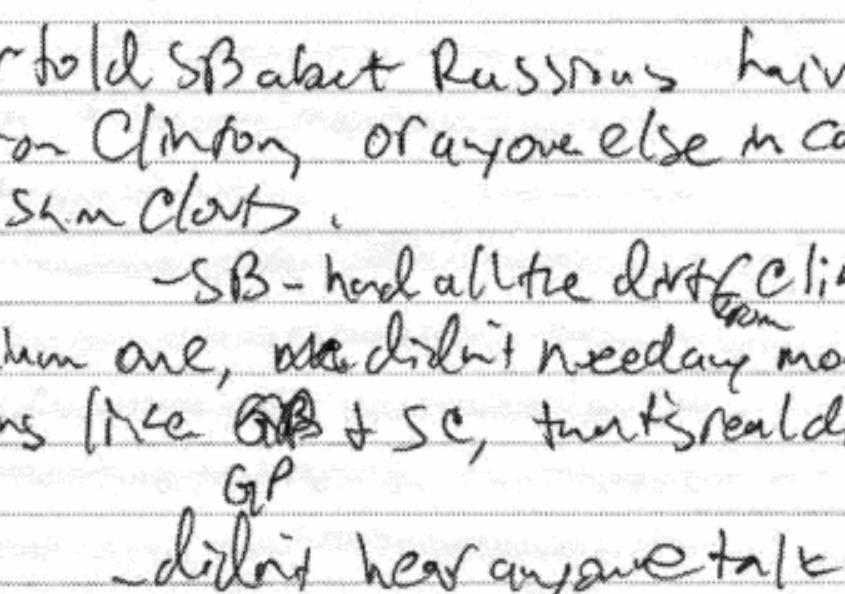 told SB about Russians hav
on Clinton, or anyone else in ca
Sam Clovis.
- SB - had all the dirt Cli
from
one, didn't need any mo
ns like & SC, that's real di
GP
- didn't hear anyone talk